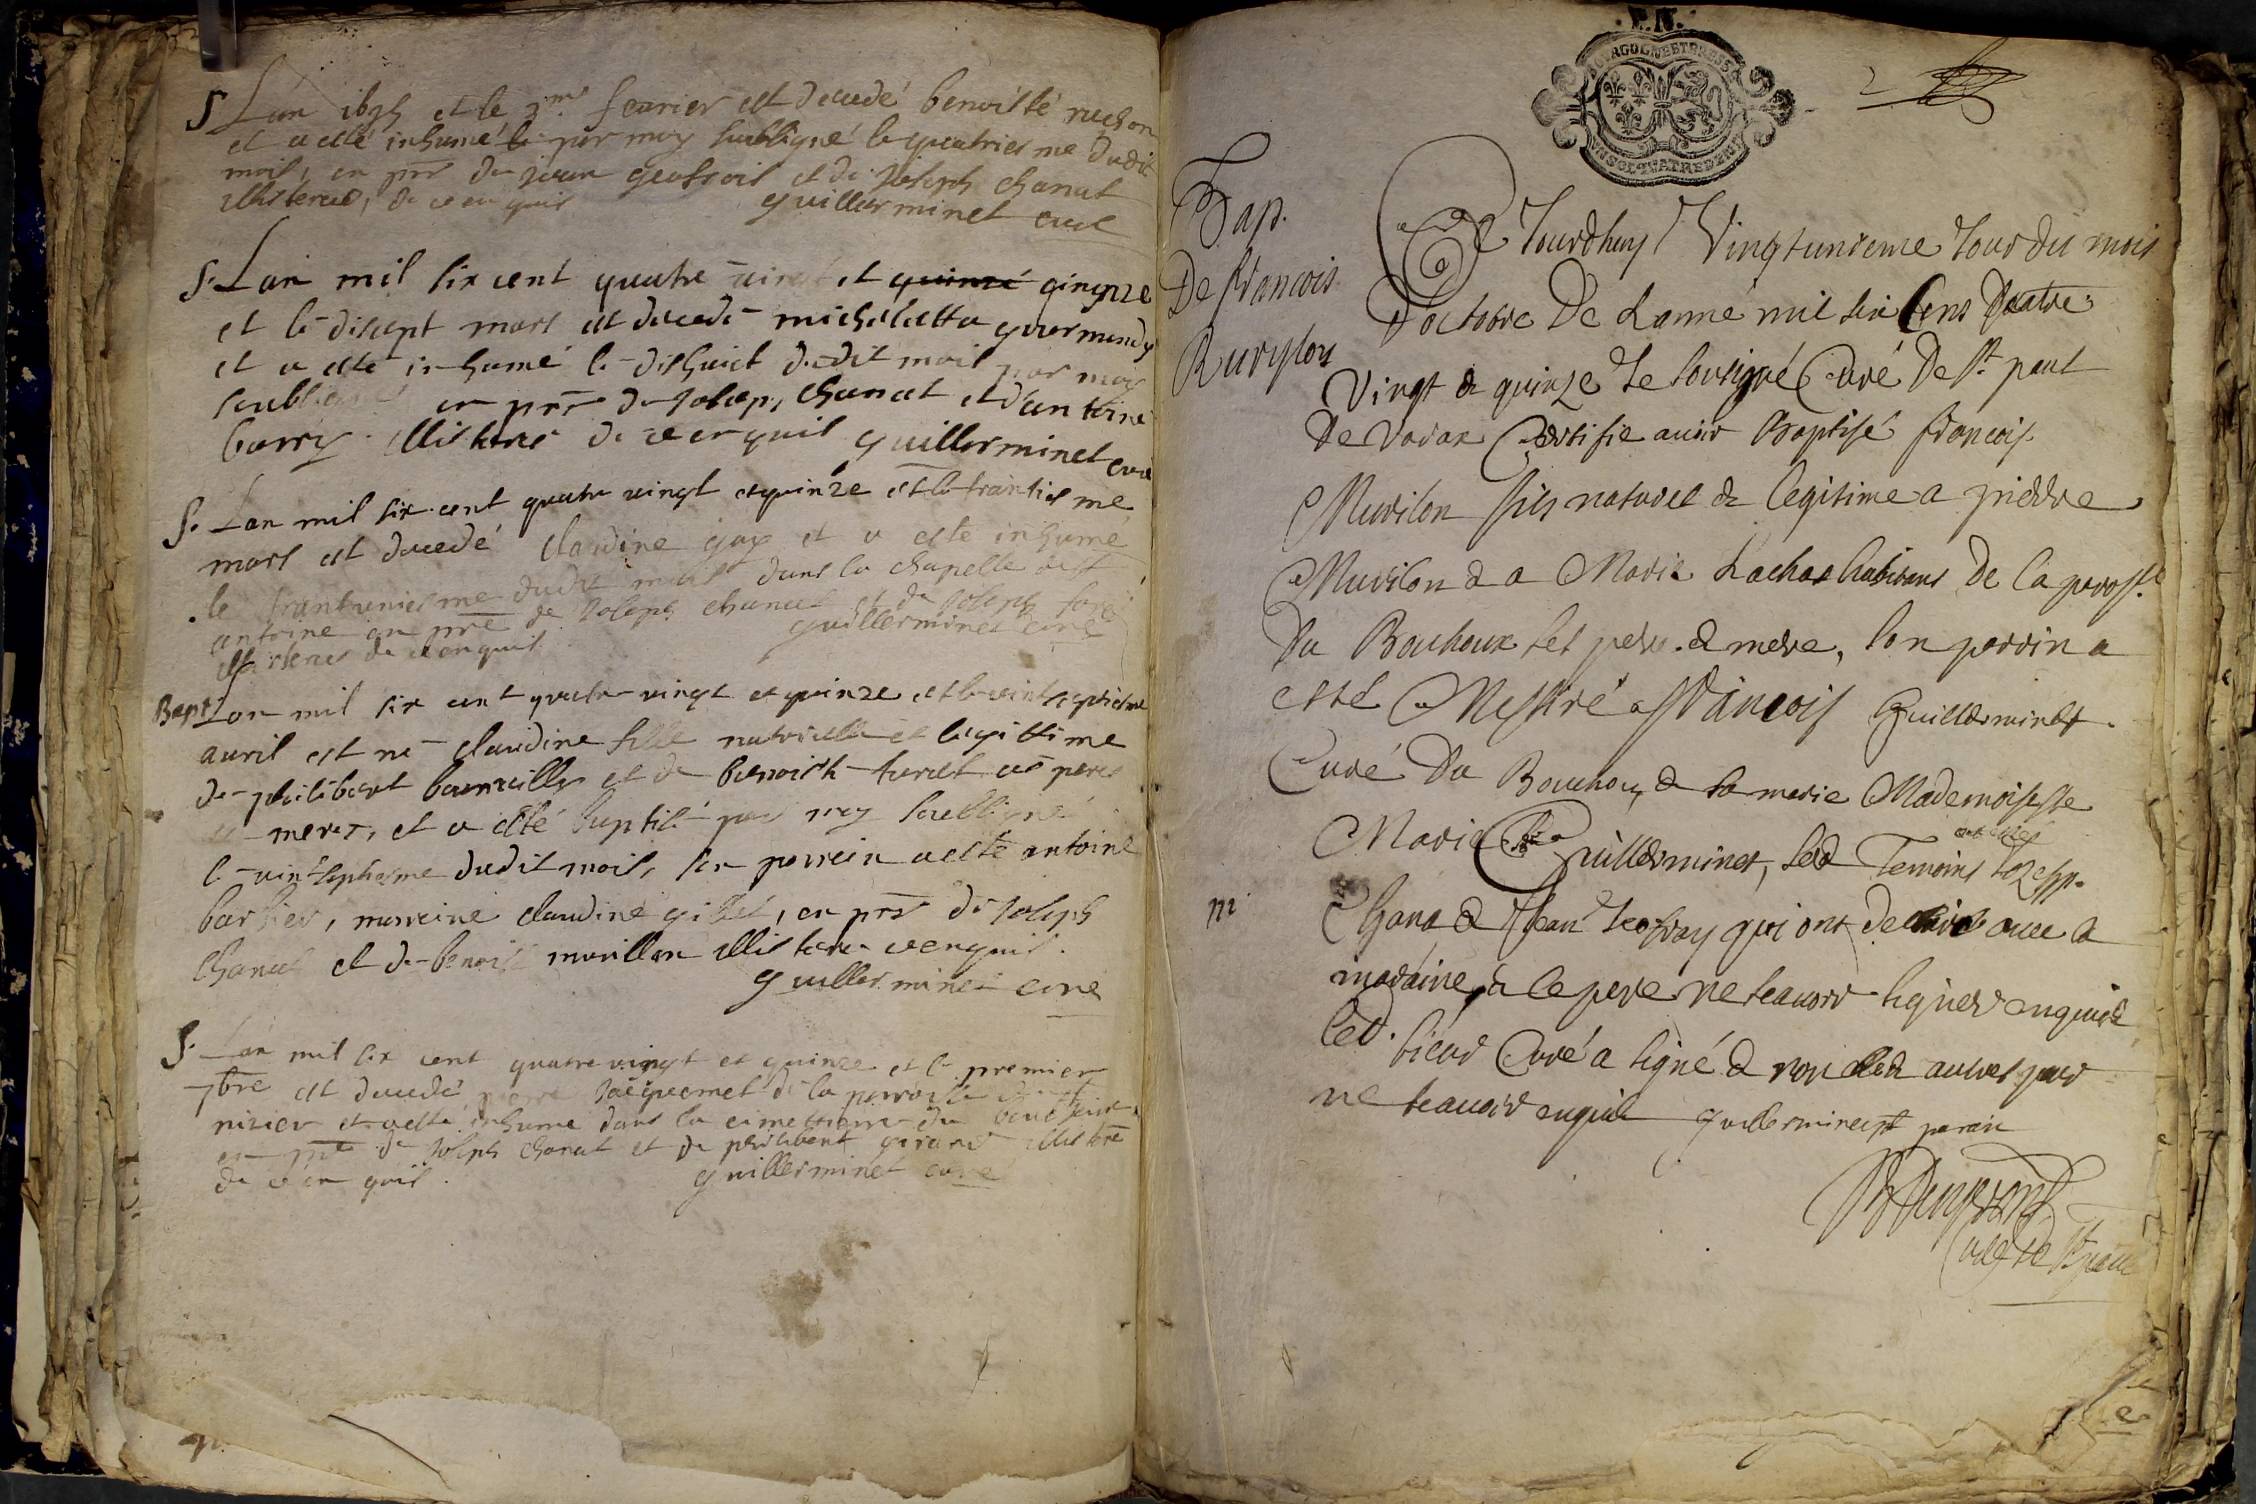 S Lan 1695 et le 3me fevrier est decedé benoiste ruchon
et a esté inhumé par moy soubsigné le quatriesme dudit
mois, en pns de jean geofrois et de joseph chanut
illisterés, de ce enquis guillerminet curé
S. Lan mil six cent quatre vingt et quinze qinqnze
et le disept mars est decedé michelette gourmandy
et a esté inhumé le dishuict dudit mois par moy
soubsigné en pns de Josep, chanut et dantoine
barry illisteres de ce enquis guillerminet curé
S. Lan mil six cent quatre vingt et quinze et le trantiesme
mars est decedé claudine gay et a este inhumé
le trantuniesme dudit mois dans la chapelle de st
antoine en pns de Joseph chanut et de Joseph
illisteres de ce enquis guillerminet curé
Bapt Lan mil six cent quatre vingt et quinze et le vintseptiesme
avril est né claudine fille naturielle et legittime
de philibert et de benoiste turel ces peres
et meres, et a esté baptisé par moy soubsigné
le vintseptiesme dudit mois, son parrein a esté antoine
barbier, marreine claudine gillet, en pns de Joseph
chanut et de benoist murillon illistere ce enquis.
guillerminet curé
S. Lan mil six cent quatre vingt et quinze et le premier
7bre est decedé pierre Jacquemet de la parroisse de st
nizier et a esté inhume dans la cimettiere du bouchoux,
en pns de Joseph chanut et de philibert girand illistere
de ce en quis. guillerminet curé
F. N.
BOURGOGNE ET BRESSE
UN SOL QUATRE DEN
2
Bap.
De francois
Murylon
Ce Jourdhuy Vingtunieme Jour du mois
d'octobre De Lanné mil six Cens Quatre
Vingt & quinze Je sousigné Curé De St paul
De Varax Certifie auoir Baptisé francois
Murilon fils naturel & legitime a pierre
Murilon & a Marie Lachas habitans De la paross.e
Du Bouhoux ses pere. & mere, son parrin a
esté Messire francois Guillerminet.
Curé Du Bouchoux & sa merie Mademoiselle
Marie Guillerminet, Led Temoins Jozesp.
Chana & Jean Jeofray qui ont declaré auec la
maraine, & le pere ne seauoir signer enquis
Led. sieur Curé a signé & non Led autres pour
ne seauoir enquis guillerminet parain
Curé de St paul